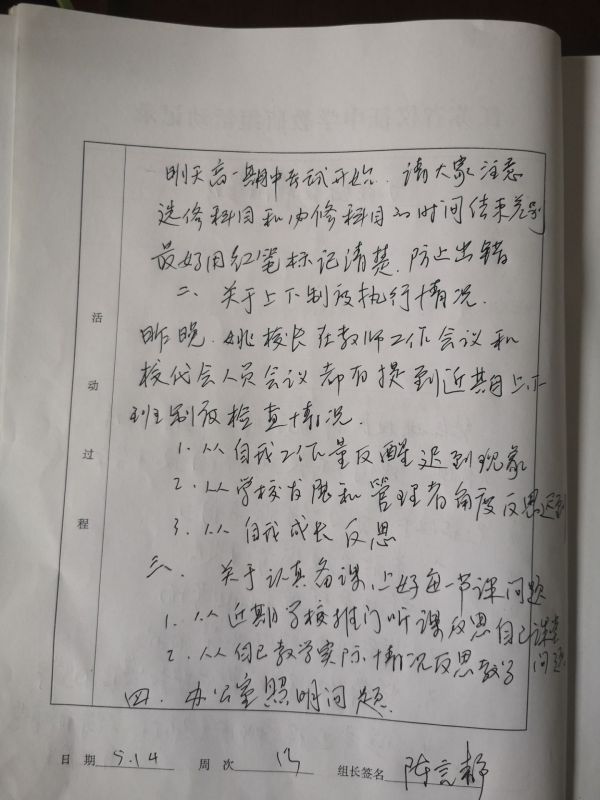 明天高一期中考试开始．请大家注意
选修科目和必修科目的时间结束差别
最好用红笔标记清楚．防止出错
二、关于上下制度执行情况．
昨晚．姚校长在教师工作会议和
校代会人员会议都有提到近期上下
班制度检查情况．
1．从自我工作量反醒迟到现象
2．从学校发展和管理者角度反思迟到
3．从自我成长反思
三、关于认真备课，上好每一节课问题
1．从近期学校推门听课反思自己课堂
2．从自己教学实际情况反思教学问题
四．办公室照明问题．
活动过程
日期 5.14 周次 13 组长签名